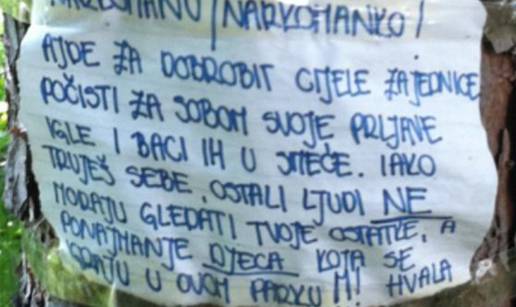 NARKOMANU / NARKOMANKO !
AJDE ZA DOBROBIT CIJELE ZAJEDNICE
POČISTI ZA SOBOM SVOJE PRLJAVE
IGLE I BACI IH U SMEĆE. IAKO
TRUJEŠ SEBE, OSTALI LJUDI NE
MORAJU GLEDATI TVOJE OSTATKE, A
PONAJMANJE DJECA KOJA SE
IGRAJU U OVOM PARKU !!! HVALA